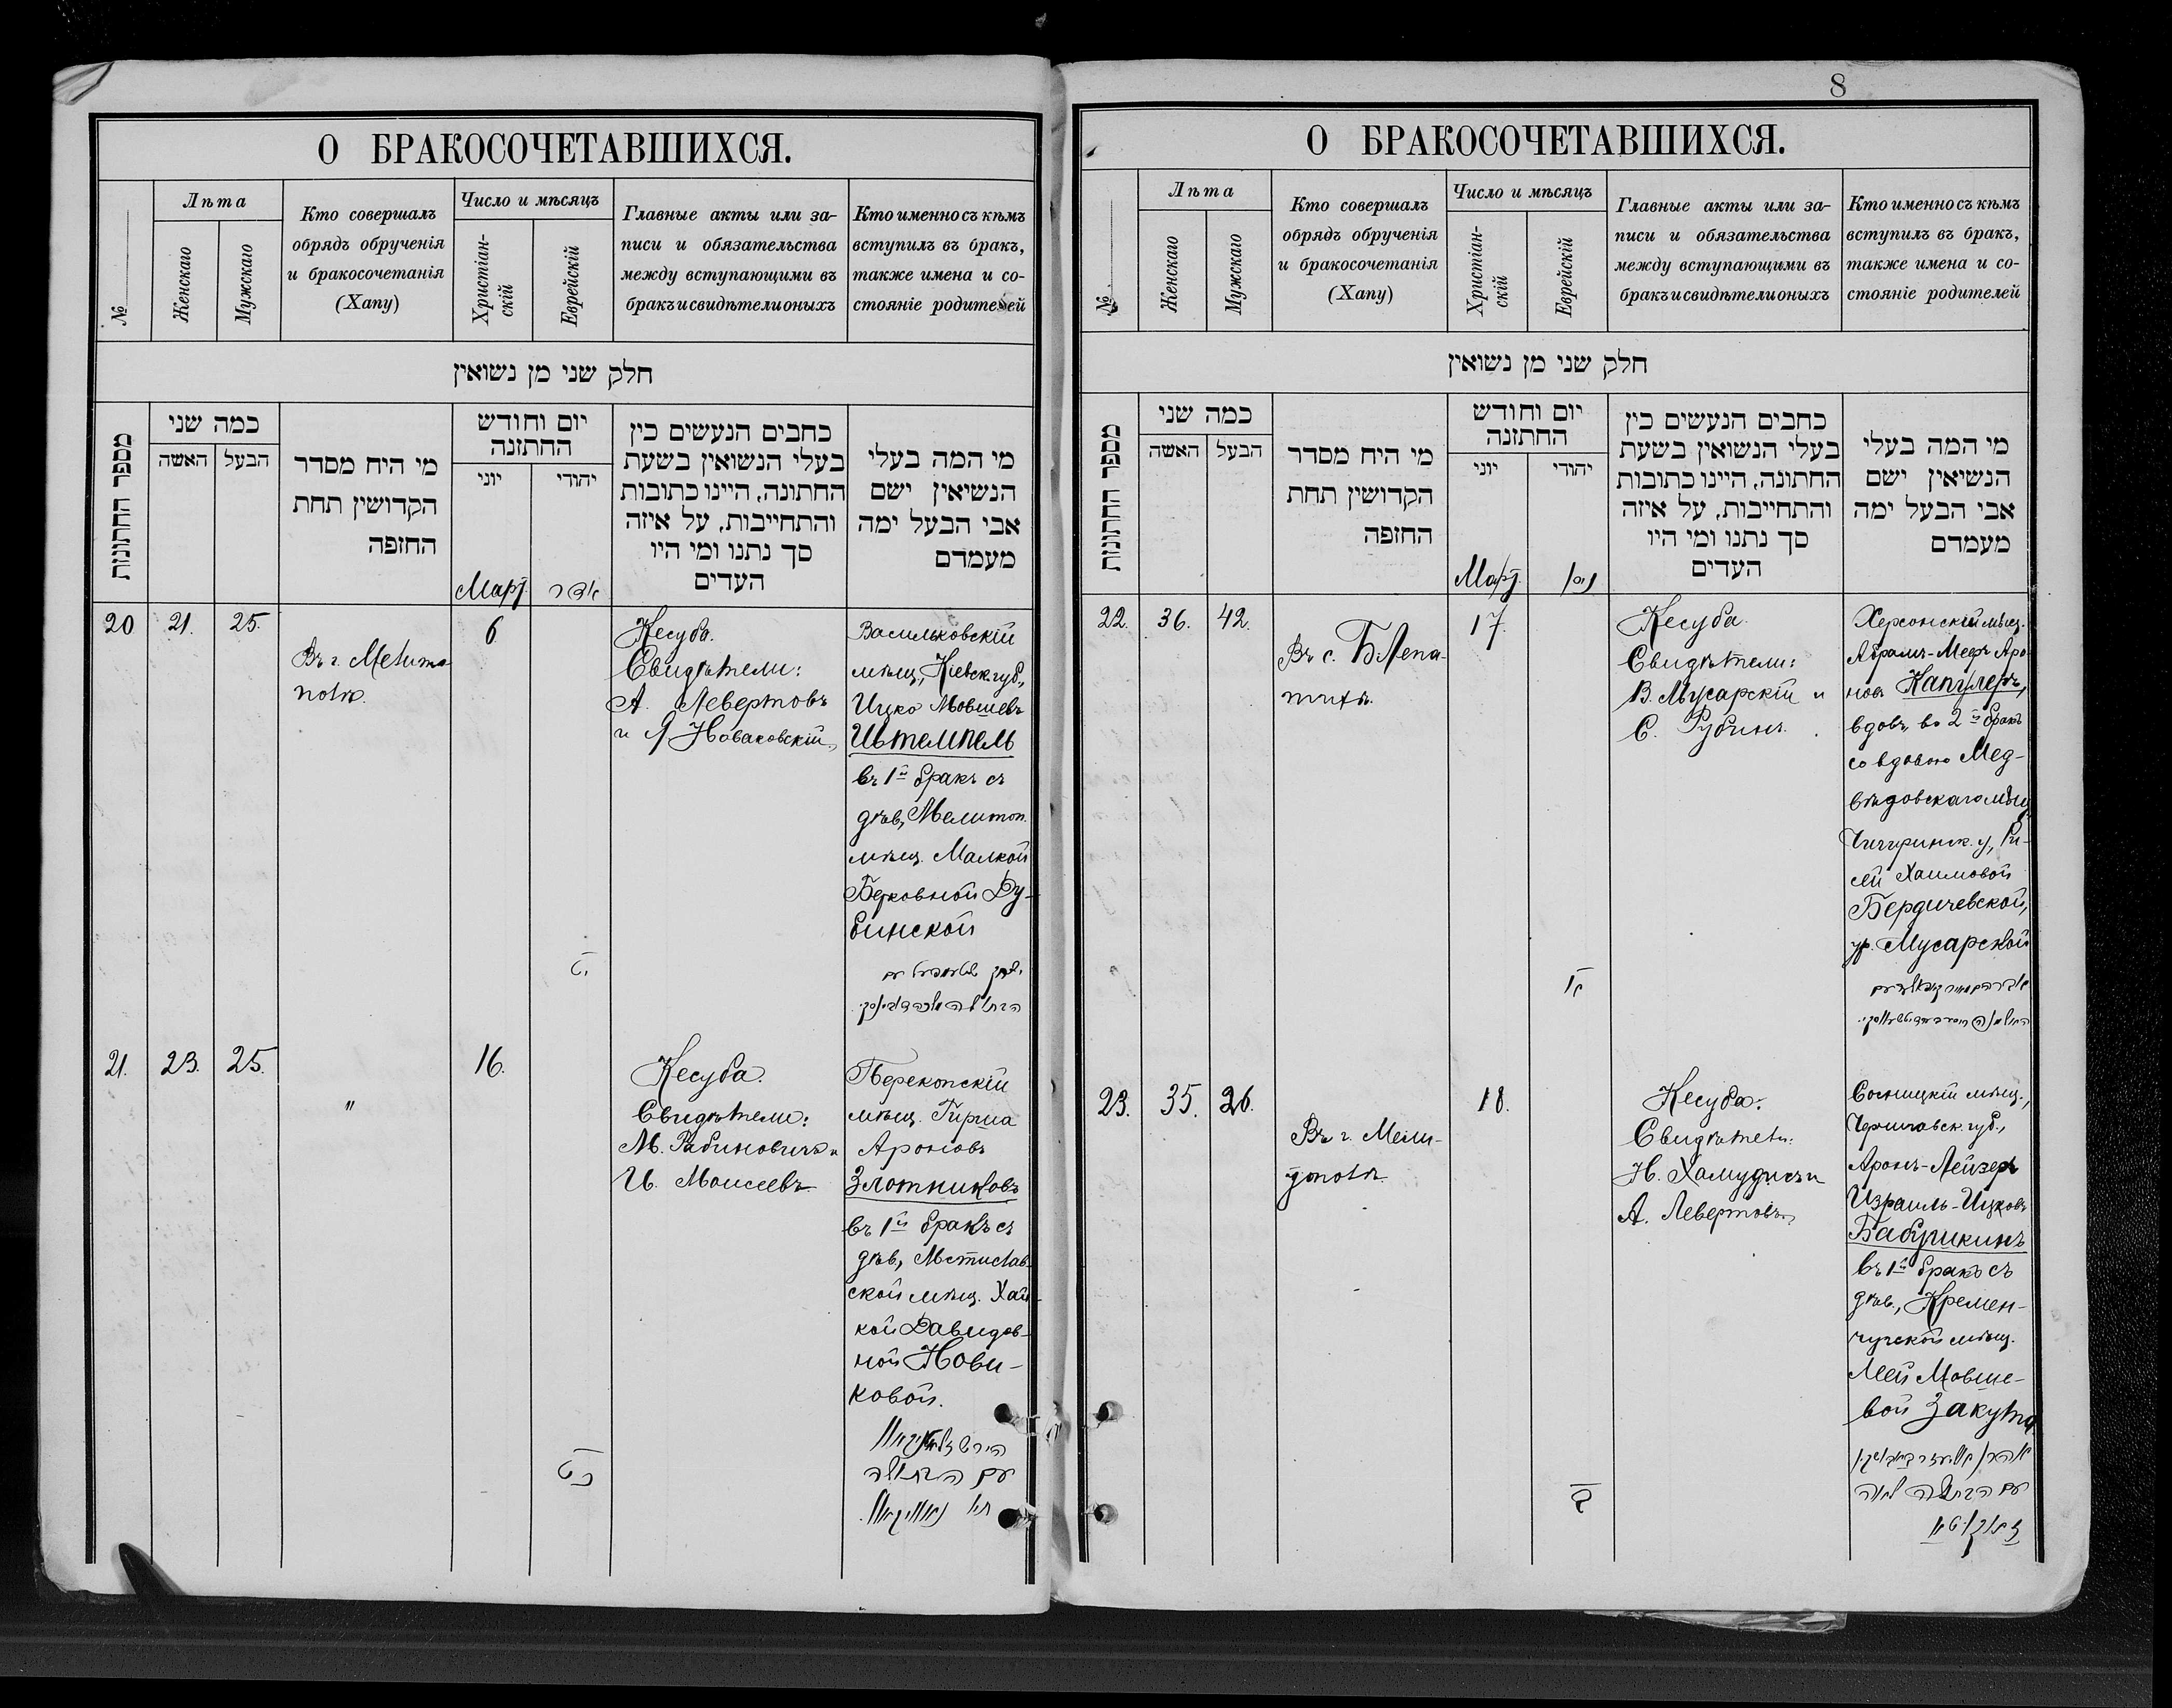 О БРАКОСОЧЕТАВШИХСЯ.
№
Лѣта
Женскаго
Мужскаго
Кто совершалъ
обрядъ обрученія
и бракосочетанія
(Хапу)
Число и мѣсяцъ
Христіан-
скій
Еврейскій
Главные акты или за-
писи и обязательства
между вступающими въ
бракъ и свидѣтели оныхъ
Кто именно съ кѣмъ
вступилъ въ бракъ,
также имена и со-
стояніе родителей
חלק שני מן נשואין
מספר החתונות
כמה שני
האשה
הבעל
מי היח מסדר
הקדושין תחת
החזפה
יום וחודש
החתזנה
יוני
יהודי
כחבים הנעשים כין
בעלי הנשואין בשעת
החתונה, היינו כתובות
והתחייבות, על איזה
סך נתנו ומי היו
העדים
מי המה בעלי
הנשיאין ישם
אבי הבעל ימה
מעמדם
Март
אדר
20
21.
25.
Въ г. Мелито
полѣ.
6
Кесуба.
Свидѣтели:
А. Левертовъ
и Я Новаковскій
Васильковскій
мѣщ., Кіевск. губ.,
Ицко Мовшевъ
Штемпель
въ 1й бракъ съ
дѣв., Мелитоп.
мѣщ. Малкой
Берковной Ду-
бинской
יט
21.
23.
25.
"
16.
Кесуба.
Свидѣтели:
М. Рабиновичъ и
И. Моисеевъ
Перекопскій
мѣщ. Гирша
Ароновъ
Злотниковъ
въ 1й бракъ съ
дѣв., Мстислав-
ской мѣщ. Хай-
кой Давидов-
ной Нови-
ковой.
כט
עם הבתולה
8
О БРАКОСОЧЕТАВШИХСЯ.
№
Лѣта
Женскаго
Мужскаго
Кто совершалъ
обрядъ обрученія
и бракосочетанія
(Хапу)
Число и мѣсяцъ
Христіан-
скій
Еврейскій
Главные акты или за-
писи и обязательства
между вступающими въ
бракъ и свидѣтели оныхъ
Кто именно съ кѣмъ
вступилъ въ бракъ,
также имена и со-
стояніе родителей
חלק שני מן נשואין
מספר החתונות
כמה שני
האשה
הבעל
מי היח מסדר
הקדושין תחת
החזפה
יום וחודש
החתזנה
יוני
יהודי
כחבים הנעשים כין
בעלי הנשואין בשעת
החתונה, היינו כתובות
והתחייבות, על איזה
סך נתנו ומי היו
העדים
מי המה בעלי
הנשיאין ישם
אבי הבעל ימה
מעמדם
Март
ניסן
22.
36.
42.
Въ с. Б Лепа-
тихѣ.
17.
Кесуба.
Свидѣтели:
В. Мусарскій и
С. Рубинъ.
Херсонскій мѣщ.
Абрамъ-Меер Аро-
новъ Капулеръ,
вдовъ, во 2й бракъ
со вдовою Мед-
вѣдовскаго мѣщ.
Чигиринск. у, Ри-
сей Хаимовой
Бердичевской,
ур. Мусарской
23.
35.
26.
Въ г. Мели-
тополѣ.
18.
Кесуба.
Свидѣтели:
Н. Хамудисъ и
А. Левертовъ
Сосницкій мѣщ.,
Черниговск. губ.,
Аронъ-Лейзеръ
Израиль-Ицковъ
Бабушкинъ
въ 1й бракъ съ
дѣв., Кремен-
чугской мѣщ.
Леей Мовше-
вой Закута
עם הבתולה לאה